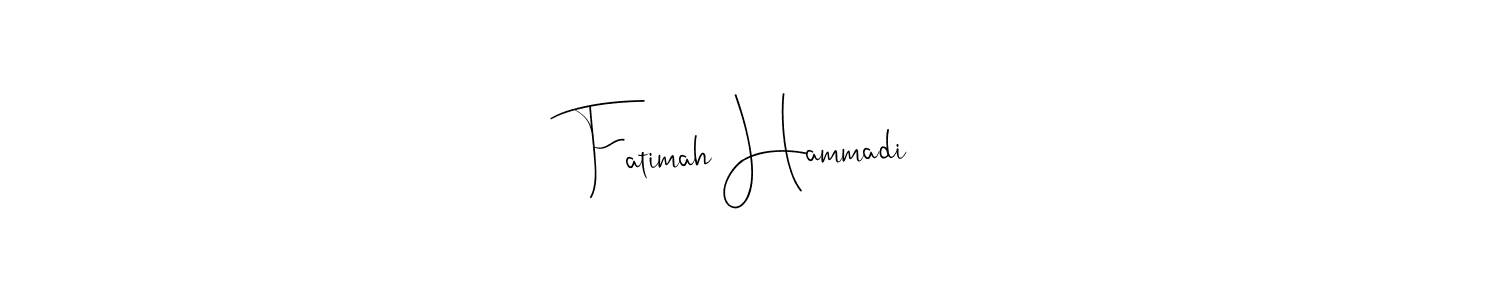 Fatimah Hammadi